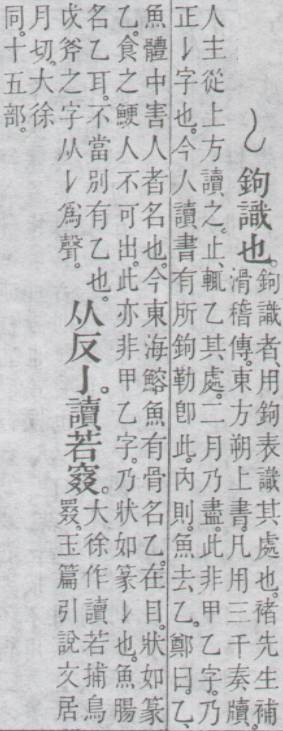 𠄌 鉤識也。
鉤識者、用鉤表識其處也。褚先生補
滑稽傳。東方朔上書。凡用三千奏牘。
人主從上方讀之。止、輒乙其處。二月乃盡。此非甲乙字。乃
正𠄌字也。今人讀書有所鉤勒卽此。內則。魚去乙。鄭曰。乙、
魚體中害人者名也。今東海鰫魚有骨名乙。在目。狀如篆
乙。食之鯁人不可出。此亦非甲乙字。乃狀如篆𠄌也。魚腸
名乙耳。不當別有乙也。
戉斧之字从𠄌爲聲。
从反亅。讀若窡。
大徐作讀若捕鳥
罬。玉篇引說文居
月切。大徐
同。十五部。